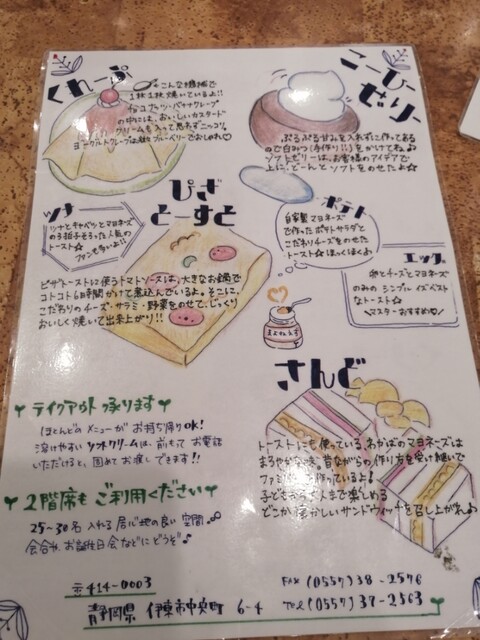 くれーぷ
こんな機械で
1枚1枚焼いているよ!!
チョコナッツ・バナナクレープ
の中には、おいしいカスタード
クリームも入って思わずニッコリ。
ヨーグルトクレープは甘ずっぱいブルーベリーでおしゃれ♡
こーひー
ぜりー
ぷるぷる甘みを入れずに作ってある
ので白みつ(手作り!!)をかけてね♪
ソフトゼリーは、お客様のアイデアで
上に、どーんと ソフトをのせたよ☆
ぴざ
とーすと
ツナ
ツナとキャベツとマヨネーズ
の3拍子そろった人気の
トースト☆
ファンも多いよ!!
ポテト
自家製マヨネーズ
で作ったポテトサラダと
こだわりチーズをのせた
トースト☆ ほっくほくよ
エッグ
卵とチーズとマヨネーズ
のみの シンプル イズ ベスト
なトースト☆
マスターおすすめ♡
ピザトーストに使うトマトソースは、大きなお鍋で
コトコト6時間かけて煮込んでいるよ。そこに、
こだわりの チーズ・サラミ・野菜をのせて、じっくり
おいしく焼いて出来上がり!!
まよねぇず
さんど
トーストにも使っている、わかばのマヨネーズは
まろやかな味。昔ながらの作り方を受け継いで
作っているよ!
楽しめる
どこか懐かしいサンドウィッチを召し上がれ♪
テイクアウト承ります
ほとんどのメニューが お持ち帰りOK!
溶けやすい ソフトクリームは、前もって お電話
いただけると、固めて お渡しできます!!
2階席も ご利用ください
25〜30名 入れる 居心地の良い 空間
会合や、お誕生日会などに どうぞ♪
〒414-0003
静岡県 伊東市中央町 6-4
FAX (0557)38-2576
Tel (0557)37-2563